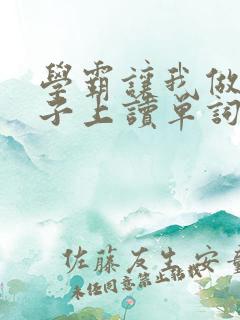 學霸讓我做
子上讀單詞
佐藤友生安
未任同意禁止轉載